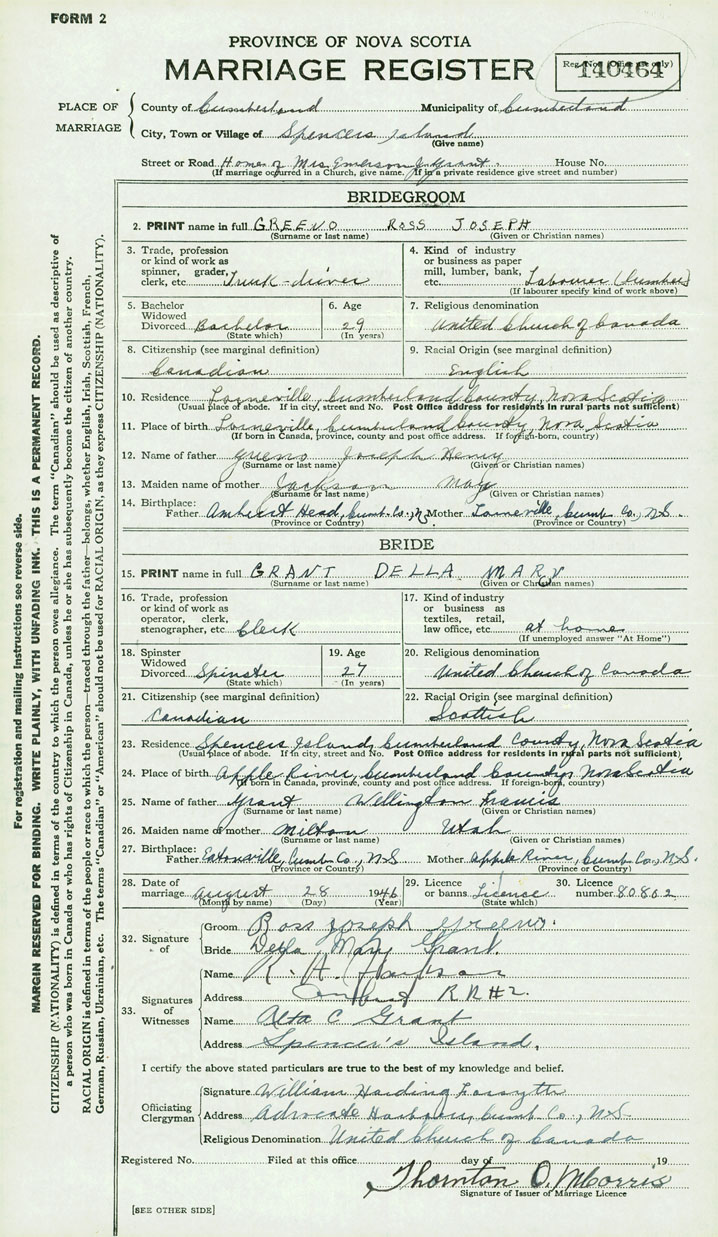 FORM 2
PROVINCE OF NOVA SCOTIA
MARRIAGE REGISTER
Reg. No. (Office use only)
140464
PLACE OF MARRIAGE
County of Cumberland Municipality of Cumberland
City, Town or Village of Spencers Island
(Give name)
Street or Road Home of Mrs. Emerson J. Grant. House No.
(If marriage occurred in a Church, give name. If in a private residence give street and number)
BRIDEGROOM
2. PRINT name in full GREENO ROSS JOSEPH
(Surname or last name) (Given or Christian names)
3. Trade, profession or kind of work as spinner, grader, clerk, etc. Truck-driver
4. Kind of industry or business as paper mill, lumber, bank, etc. Labourer (Lumber)
(If labourer specify kind of work above)
5. Bachelor Widowed Divorced Bachelor
(State which)
6. Age 29
(In years)
7. Religious denomination
United Church of Canada
8. Citizenship (see marginal definition)
Canadian
9. Racial Origin (see marginal definition)
English
10. Residence Lorneville, Cumberland County, Nova Scotia
(Usual place of abode. If in city, street and No. Post Office address for residents in rural parts not sufficient)
11. Place of birth Lorneville, Cumberland County, Nova Scotia
(If born in Canada, province, county and post office address. If foreign-born, country)
12. Name of father Greeno Joseph Henry
(Surname or last name) (Given or Christian names)
13. Maiden name of mother Jackson May
(Surname or last name) (Given or Christian names)
14. Birthplace:
Father Amherst Head, Cumb. Co., N. Mother Lorneville, Cumb Co., N.S.
(Province or Country) (Province or Country)
BRIDE
15. PRINT name in full GRANT DELLA MARY
(Surname or last name) (Given or Christian names)
16. Trade, profession or kind of work as operator, clerk, stenographer, etc Clerk
17. Kind of industry or business as textiles, retail, law office, etc. at home
(If unemployed answer "At Home")
18. Spinster Widowed Divorced Spinster
(State which)
19. Age 27
(In years)
20. Religious denomination
United Church of Canada
21. Citizenship (see marginal definition)
Canadian
22. Racial Origin (see marginal definition)
Scottish
23. Residence Spencers Island, Cumberland County, Nova Scotia
(Usual place of abode. If in city, street and No. Post Office address for residents in rural parts not sufficient)
24. Place of birth Apple River, Cumberland County, Nova Scotia
(If born in Canada, province, county and post office address. If foreign-born, country)
25. Name of father Grant Wellington Francis
(Surname or last name) (Given or Christian names)
26. Maiden name of mother Milton Utah
(Surname or last name) (Given or Christian names)
27. Birthplace:
Father Eatonville, Cumb Co., N.S Mother Apple River, Cumb Co., N.S.
(Province or Country) (Province or Country)
28. Date of marriage August 28 1946
(Month by name) (Day) (Year)
29. Licence or banns Licence
(State which)
30. Licence number 80802
32. Signature of
Groom Ross Joseph Greeno.
Bride Della Mary Grant.
33. Signatures of Witnesses
Name R. H.
Address Amherst R R #2.
Name Alta C Grant
Address Spencer's Island,
I certify the above stated particulars are true to the best of my knowledge and belief.
Officiating Clergyman
Signature William Harding Forsyth
Address Advocate Harbour, Cumb Co., N.S.
Religious Denomination United Church of Canada
Registered No. Filed at this office day of 19
Thornton O. Morris
Signature of Issuer of Marriage Licence
[SEE OTHER SIDE]
For registration and mailing instructions see reverse side.
MARGIN RESERVED FOR BINDING. WRITE PLAINLY, WITH UNFADING INK. THIS IS A PERMANENT RECORD.
CITIZENSHIP (NATIONALITY) is defined in terms of the country to which the person owes allegiance. The term "Canadian" should be used as descriptive of
a person who was born in Canada or who has rights of Citizenship in Canada, unless he or she has subsequently become the citizen of another country.
RACIAL ORIGIN is defined in terms of the people or race to which the person—traced through the father—belongs, whether English, Irish, Scottish, French,
German, Russian, Ukrainian, etc. The terms "Canadian" or "American" should not be used for RACIAL ORIGIN, as they express CITIZENSHIP (NATIONALITY).